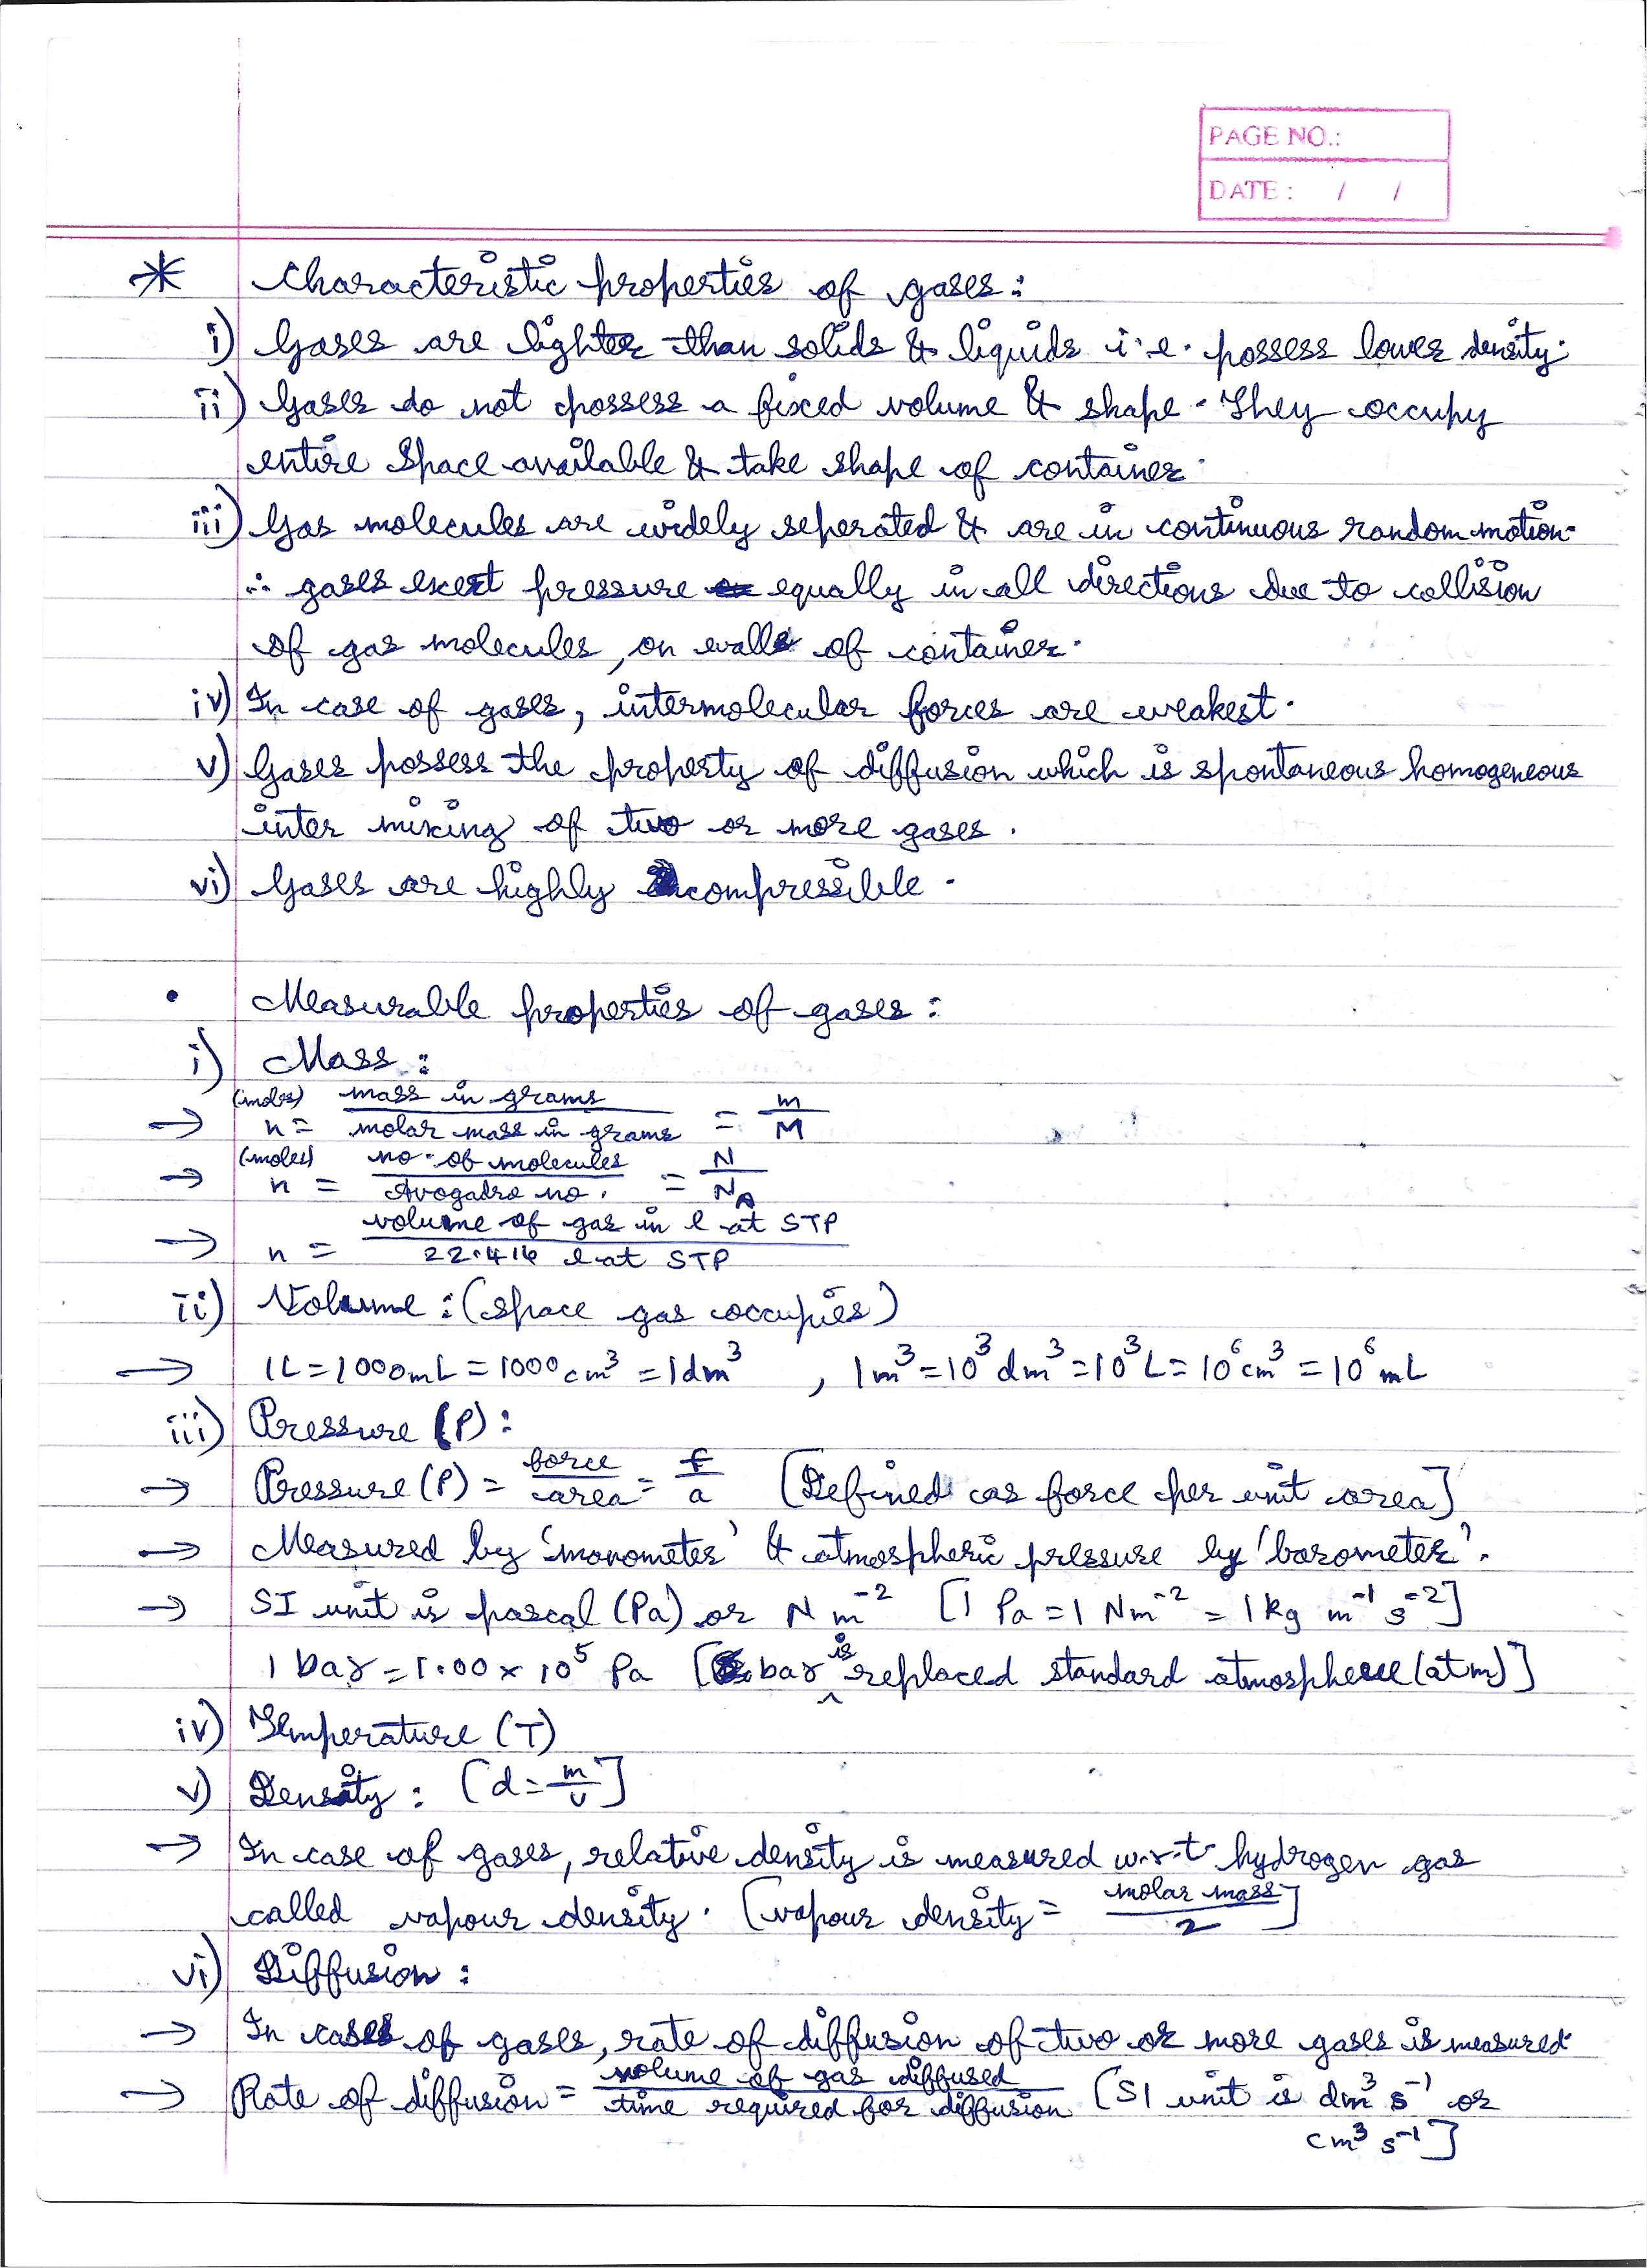 PAGE NO.:
DATE : / /
* Characteristic properties of gases :
i) Gases are lighter than solids & liquids i.e. possess lower density.
ii) Gases do not possess a fixed volume & shape. They occupy
entire space available & take shape of container.
iii) Gas molecules are widely seperated & are in continuous random motion.
∴ gases exert pressure equally in all directions due to collision
of gas molecules, on walls of container.
iv) In case of gases, intermolecular forces are weakest.
v) Gases possess the property of diffusion which is spontaneous homogeneous
inter mixing of two or more gases.
vi) Gases are highly compressible.
• Measurable properties of gases :
i) Mass :
→ (moles) n = mass in grams / molar mass in grams = m / M
→ (moles) n = no. of molecules / Avogadro no. = N / N_A
→ n = volume of gas in l at STP / 22.414 l at STP
ii) Volume : (space gas occupies)
→ 1L = 1000mL = 1000 cm³ = 1dm³ , 1m³ = 10³ dm³ = 10³ L = 10⁶ cm³ = 10⁶ mL
iii) Pressure (P) :
→ Pressure (P) = force / area = f / a [Defined as force per unit area]
→ Measured by 'manometer' & atmospheric pressure by 'barometer'.
→ SI unit is pascal (Pa) or N m⁻² [1 Pa = 1 Nm⁻² = 1 kg m⁻¹ s⁻²]
1 bar = 1.00 × 10⁵ Pa [bar is replaced standard atmosphere (atm)]
iv) Temperature (T)
v) Density : [d = m / v]
→ In case of gases, relative density is measured w.r.t hydrogen gas
called vapour density. [vapour density = molar mass / 2]
vi) Diffusion :
→ In case of gases, rate of diffusion of two or more gases is measured.
→ Rate of diffusion = volume of gas diffused / time required for diffusion [SI unit is dm³ s⁻¹ or
cm³ s⁻¹]